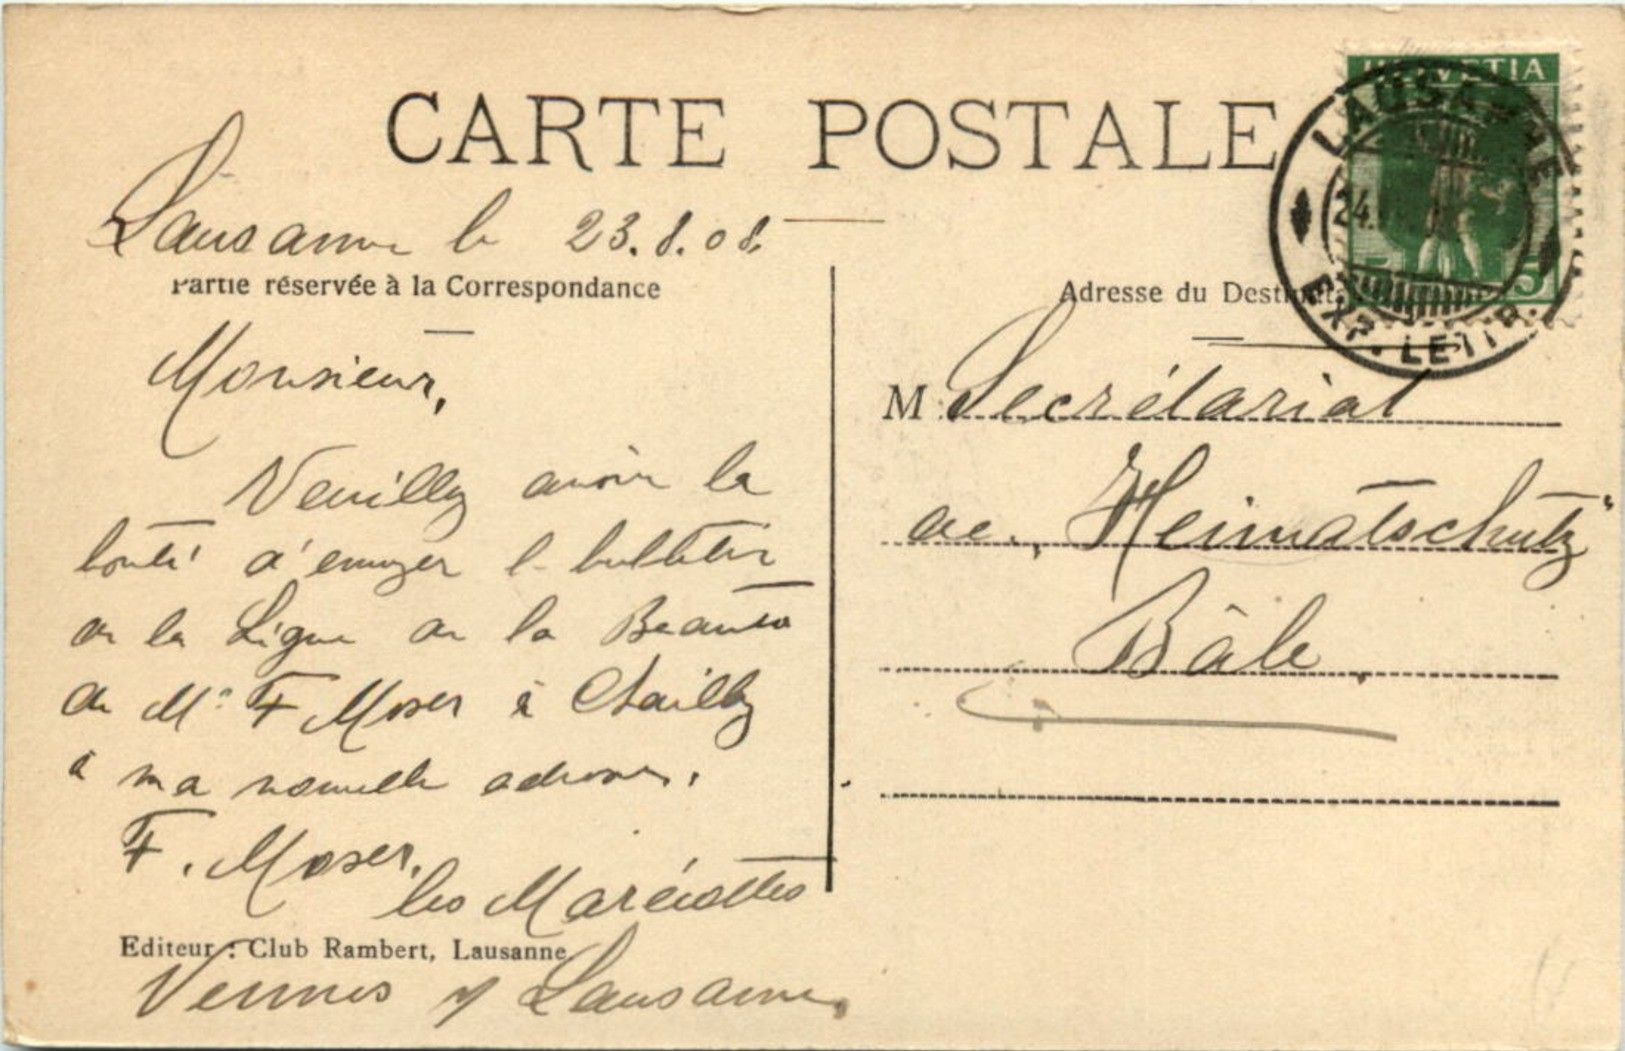 CARTE POSTALE
Lausanne le 23.8.08.
Partie réservée à la Correspondance
Monsieur,
Veuillez avoir la
bonté d'envoyer le bulletin
de la Ligue de la Beauté
de Mr F Moser à Chailly
à ma nouvelle adresse.
F. Moser,
les
Editeur : Club Rambert, Lausanne.
Vennes s/ Lausanne.
HELVETIA
5
LAUSANNE
24.
EXP. LETTR.
Adresse du
M Secrétariat
de „Heimatschutz"
Bâle.